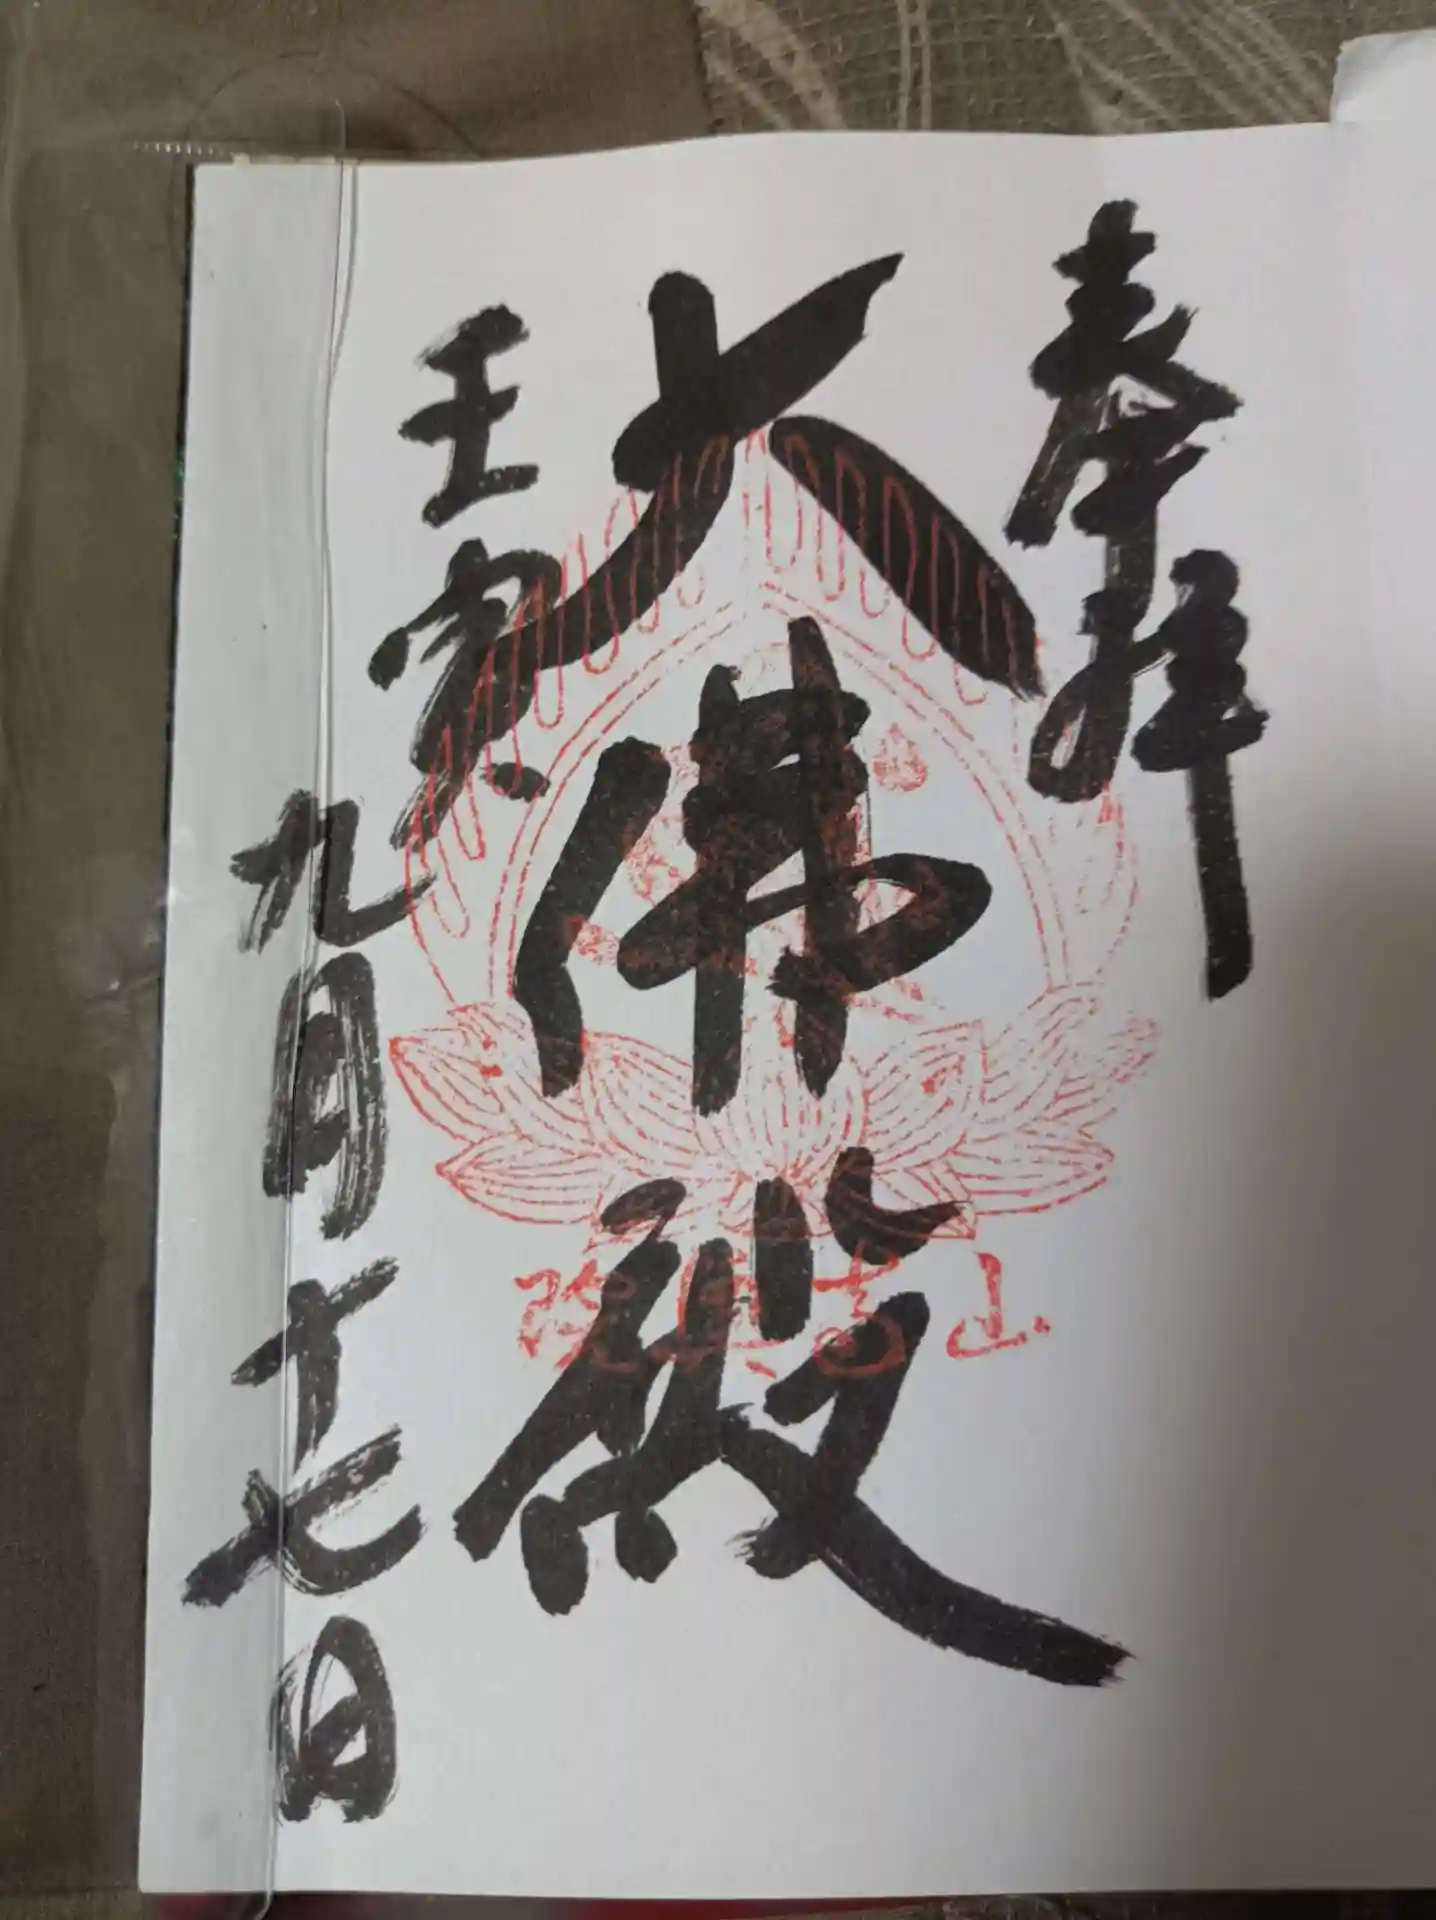 奉拜
大佛殿
壬寅
九月十七日